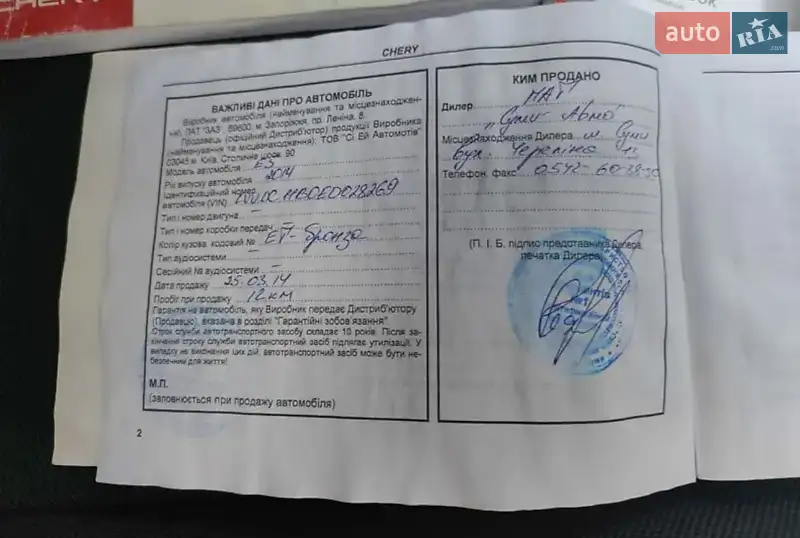 CHERY
auto RIA.com
CHERY
ВАЖЛИВІ ДАНІ ПРО АВТОМОБІЛЬ
Виробник автомобіля (найменування та місцезнаходжен-
ня), ПАТ "ЗАЗ", 69600 м. Запоріжжя, пр. Леніна, 8.
Продавець (офіційний Дистриб'ютор) продукції Виробника
(найменування та місцезнаходження): ТОВ "Сі Ей Автомотів"
03045 м. Київ, Столичне шосе, 90
Модель автомобіля E3
Рік випуску автомобіля 2014
Ідентифікаційний номер
автомобіля (VIN)
Тип і номер двигуна –
Тип і номер коробки передач –
Колір кузова, кодовий № ET - бронза
Тип аудіосистеми –
Серійний № аудіосистеми –
Дата продажу 25.03.14
Пробіг при продажу 12 км
Гарантія на автомобіль, яку Виробник передає Дистриб'ютору
(Продавцю), вказана в розділі "Гарантійні зобов'язання".
Строк служби автотранспортного засобу складає 10 років. Після за-
кінчення строку служби автотранспортний засіб підлягає утилізації. У
випадку не виконання цих дій, автотранспортний засіб може бути не-
безпечним для життя!
М.П.
(заповнюється при продажу автомобіля)
2
КИМ ПРОДАНО
Дилер
"Суми Авто"
Місцезнаходження Дилера м. Суми
Телефон, факс 0542-60-
(П. І. Б, підпис представника Дилера,
печатка Дилера)